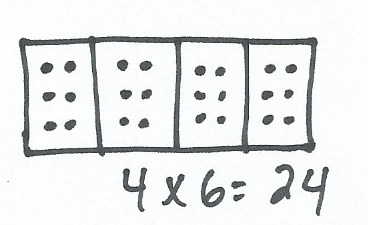 4 x 6 = 24